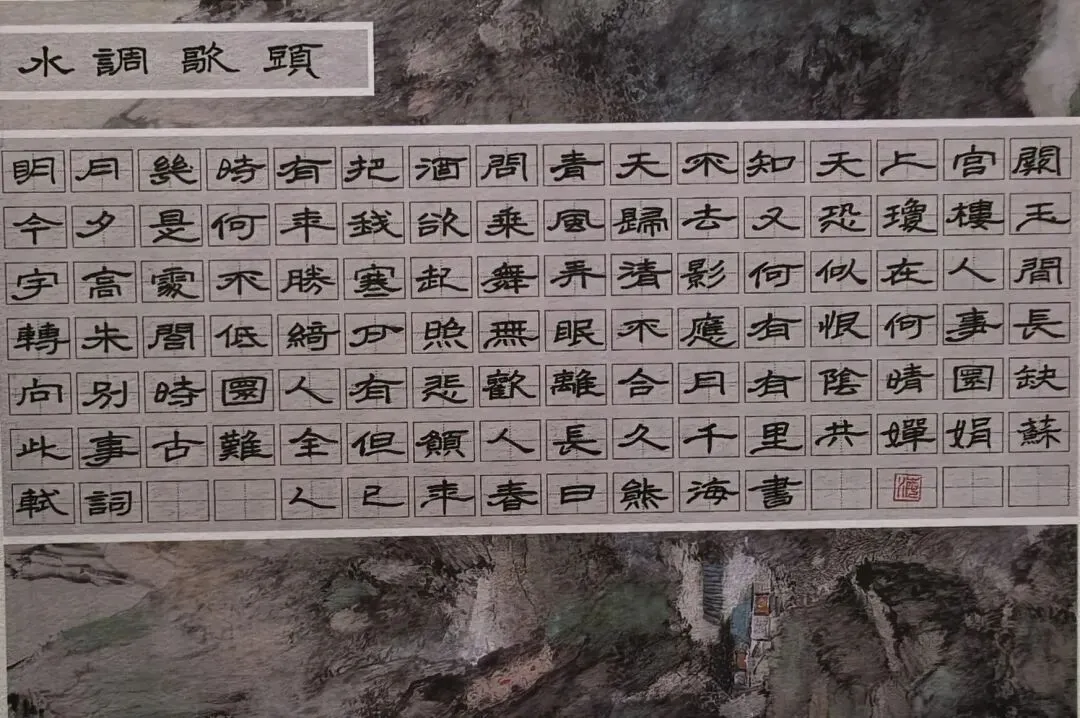 水調歌頭
明月幾時有把酒問青天不知天上宮闕
今夕是何年我欲乘風歸去又恐瓊樓玉
宇高處不勝寒起舞弄清影何似在人間
轉朱閣低綺戶照無眠不應有恨何事長
向別時圓人有悲歡離合月有陰晴圓缺
此事古難全但願人長久千里共嬋娟蘇
軾詞 乙巳年春日熊海書